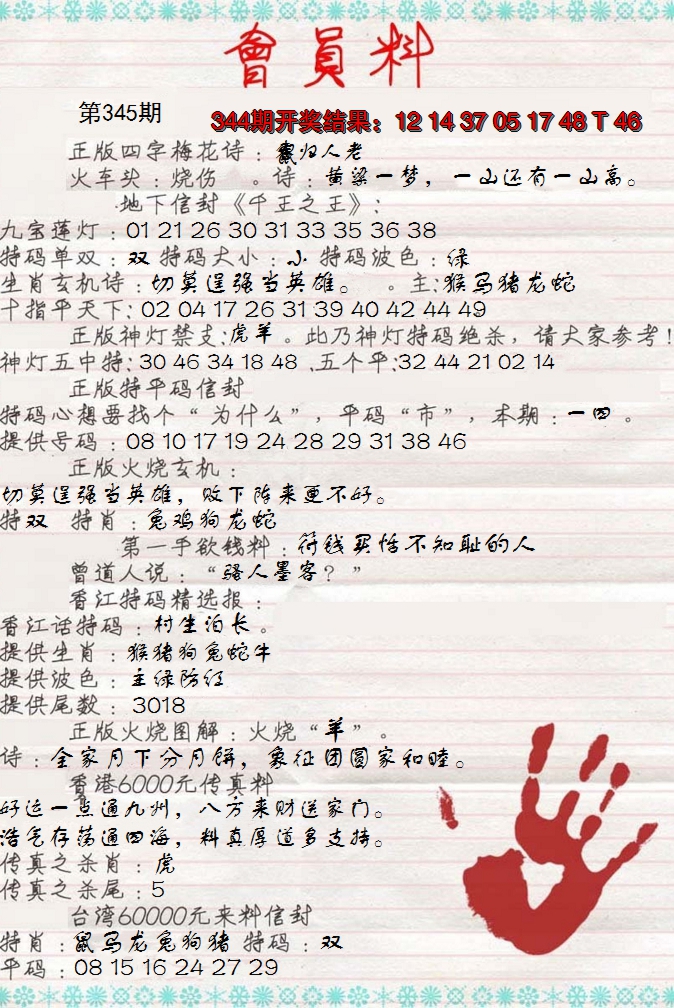 會員料
第345期
344期开奖结果：12 14 37 05 17 48 T 46
正版四字梅花诗：鬣归人老
火车头：烧伤 。诗：黄梁一梦，一山还有一山高。
地下信封《千王之王》：
九宝莲灯：01 21 26 30 31 33 35 36 38
特码单双：双 特码大小：小 特码波色：绿
生肖玄机诗：切莫逞强当英雄。 。主：猴马猪龙蛇
十指平天下：02 04 17 26 31 39 40 42 44 49
正版神灯禁支：虎羊。此乃神灯特码绝杀，请大家参考！
神灯五中特：30 46 34 18 48 、五个平：32 44 21 02 14
正版特平码信封
特码心想要找个“为什么”，平码“市”，本期：一四。
提供号码：08 10 17 19 24 28 29 31 38 46
正版火烧玄机：
切莫逞强当英雄，败下阵来更不好。
特双 特肖：兔鸡狗龙蛇
第一手欲钱料：符钱买恬不知耻的人
曾道人说：“骚人墨客？”
香江特码精选报：
香江话特码：村生泊长。
提供生肖：猴猪狗兔蛇牛
提供波色：主绿防红
提供尾数：3018
正版火烧图解：火烧“羊”。
诗：全家月下分月饼，象征团圆家和睦。
香港6000元传真料
好运一点通九州，八方来财送家门。
浩气存荡通四海，料真厚道多支持。
传真之杀肖：虎
传真之杀尾：5
台湾60000元来料信封
特肖：鼠马龙兔狗猪 特码：双
平码：08 15 16 24 27 29